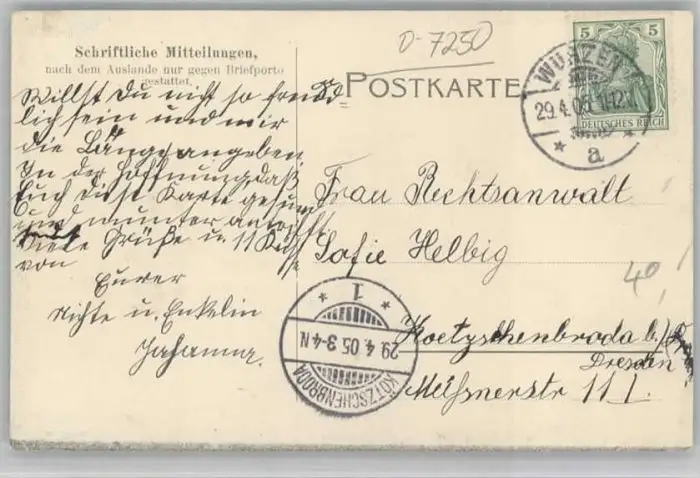 Schriftliche Mitteilungen,
nach dem Auslande nur gegen Briefporto
gestattet.
D-7250
POSTKARTE
5 5
DEUTSCHES REICH
WURZEN
29.4.05 11-12V.
* a *
Willst Du nicht so freund
lich sein und mir
die Länge angeben
In der Hoffnung, daß
Euch diese Karte gesund
und munter antrifft
Viele Grüße u. 11 Küsse
von
Eurer
Nichte u. Enkelin
Johanna.
Frau Rechtsanwalt
Sofie Helbig
40,
Koetzschenbroda b/
Dresden
Meißnerstr 11 I.
* 1 *
29.4.05 3-4N
KÖTZSCHENBRODA